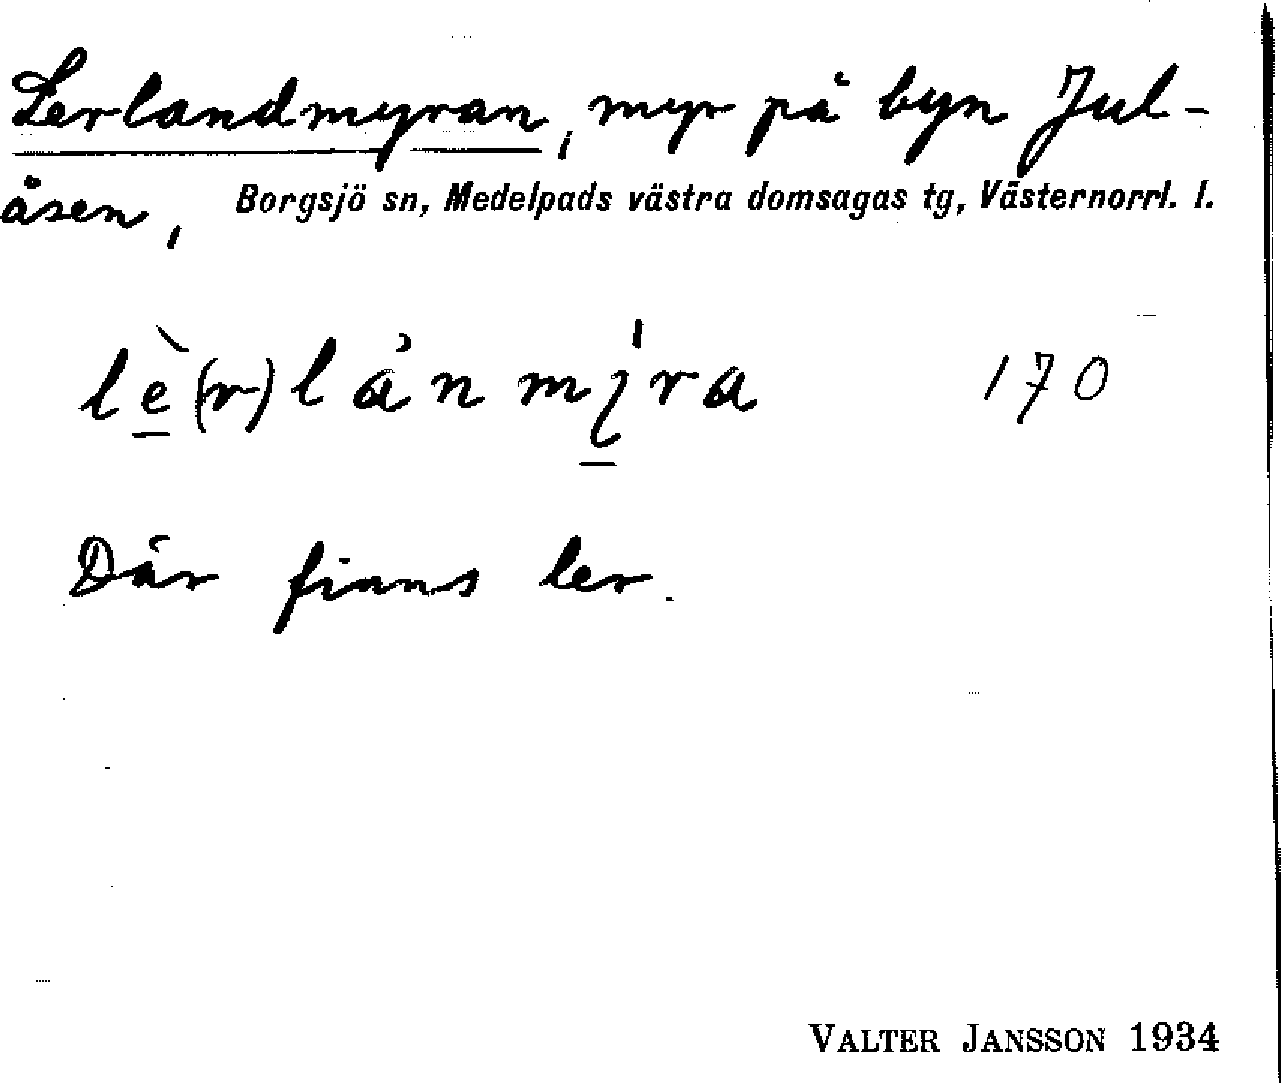 Lerlandmyran, myr på byn Jul-
åsen, Borgsjö sn, Medelpads västra domsagas tg, Västernorrl. l.
lè(r)lån mýra 170
Där finns ler.
VALTER JANSSON 1934